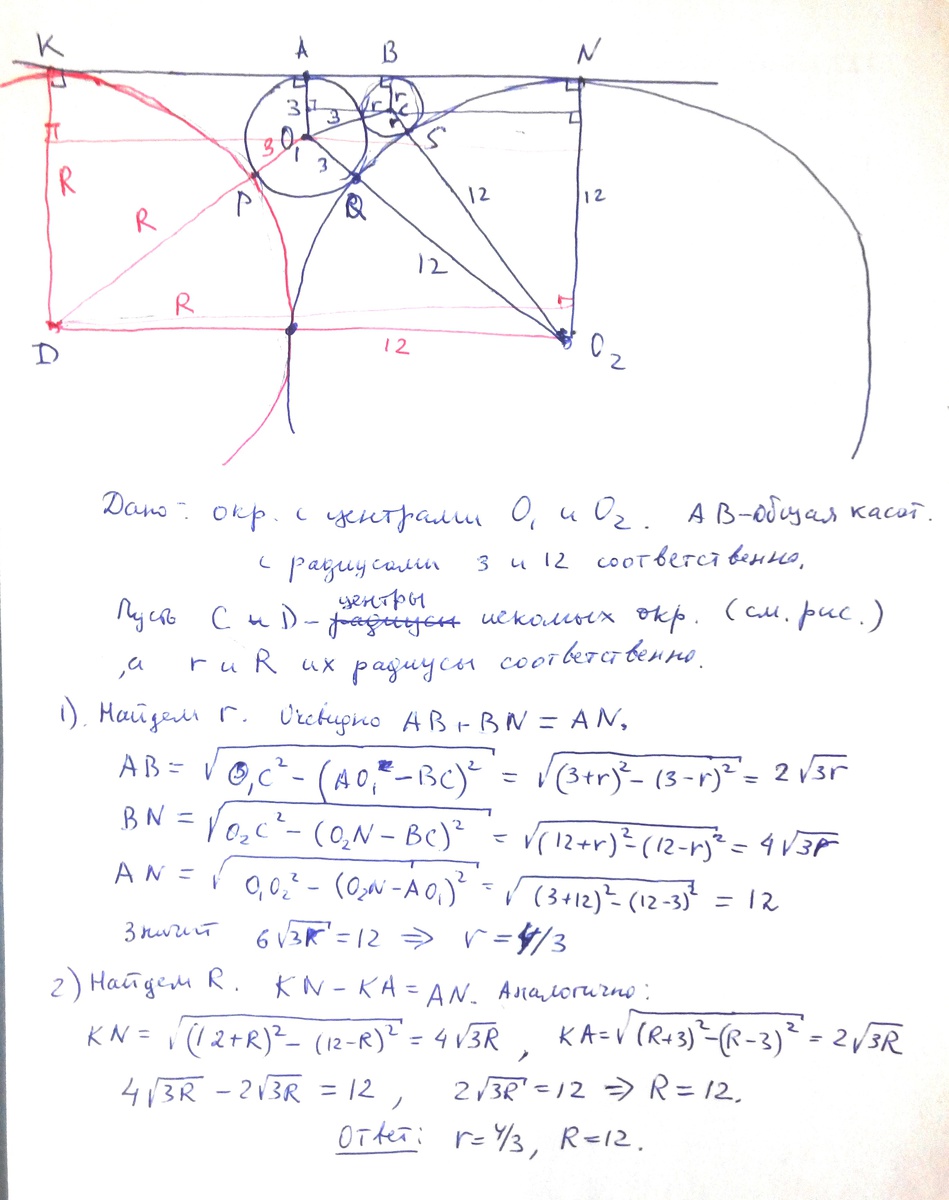 K A B N
3 3 r r C
O₁ 3 S
3
R P Q 12 12
R
12
R
D 12 O₂
Дано: окр. с центрами O₁ и O₂. AB-общая касат.
с радиусами 3 и 12 соответственно.
Пусть C и D - центры искомых окр. (см. рис.)
, а r и R их радиусы соответственно.
1). Найдем r. Очевидно AB + BN = AN,
AB = √(O₁C² - (AO₁ - BC)²) = √((3+r)² - (3-r)²) = 2√3r
BN = √(O₂C² - (O₂N - BC)²) = √((12+r)² - (12-r)²) = 4√3r
AN = √(O₁O₂² - (O₂N - AO₁)²) = √((3+12)² - (12-3)²) = 12
Значит 6√3r = 12 ⇒ r = 4/3
2) Найдем R. KN - KA = AN. Аналогично:
KN = √((12+R)² - (12-R)²) = 4√3R , KA = √((R+3)² - (R-3)²) = 2√3R
4√3R - 2√3R = 12 , 2√3R = 12 ⇒ R = 12.
Ответ: r = 4/3, R = 12.